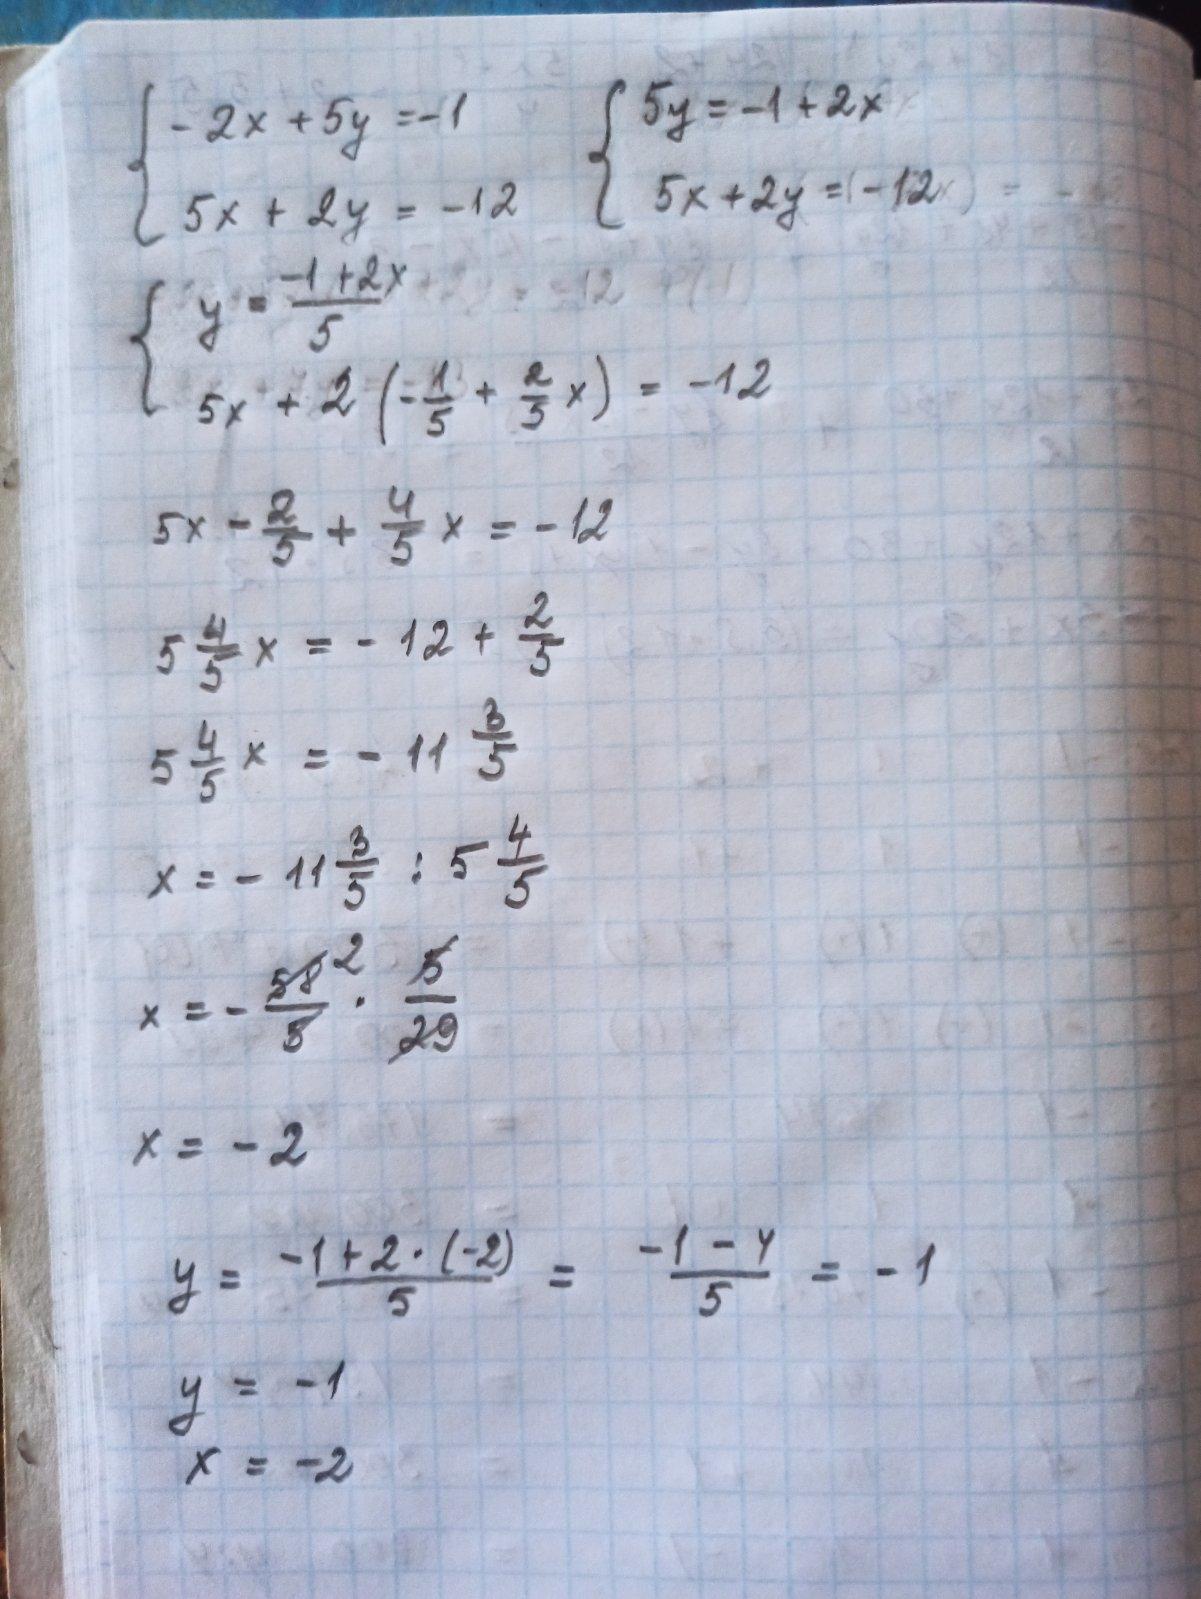 { -2x + 5y = -1
5x + 2y = -12
{ 5y = -1 + 2x
5x + 2y = -12
{ y = (-1 + 2x)/5
5x + 2 (-1/5 + 2/5 x) = -12
5x - 2/5 + 4/5 x = -12
5 4/5 x = - 12 + 2/5
5 4/5 x = - 11 3/5
x = - 11 3/5 : 5 4/5
x = - 58/5 2 · 5/29
x = - 2
y = (-1 + 2 · (-2))/5 = (-1 - 4)/5 = - 1
y = -1
x = -2